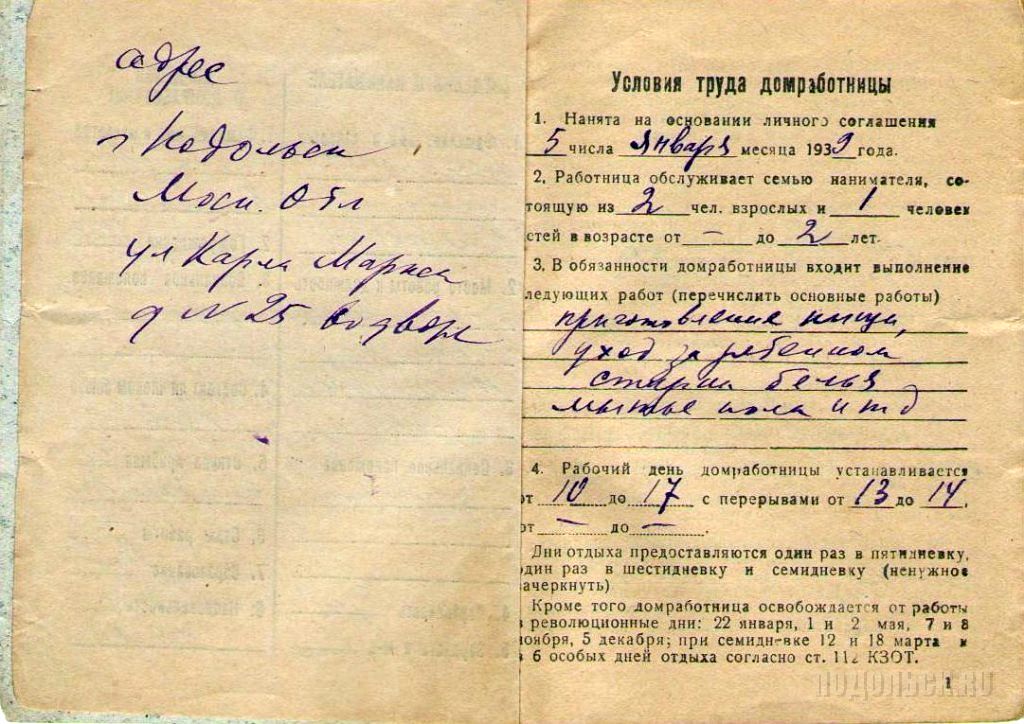 адрес
г Подольск
Моск. Обл
ул Карла Маркса
д N 25 во дворе
Условия труда домработницы
1. Нанята на основании личного соглашения
5 числа января месяца 1939 года.
2. Работница обслуживает семью нанимателя, со-
тоящую из 2 чел. взрослых и 1 человек
стей в возрасте от — до 2 лет.
3. В обязанности домработницы входит выполнение
ледующих работ (перечислить основные работы)
приготовление пищи,
уход за ребенком
стирка белья
мытье пола и т д
4. Рабочий день домработницы устанавливается
от 10 до 17 с перерывами от 13 до 14,
от — до —.
Дни отдыха предоставляются один раз в пятидневку,
один раз в шестидневку и семидневку (ненужное
зачеркнуть)
Кроме того домработница освобождается от работы
в революционные дни: 22 января, 1 и 2 мая, 7 и 8
ноября, 5 декабря; при семидневке 12 и 18 марта и
в 6 особых дней отдыха согласно ст. 112 КЗОТ.
1
ПОДОЛЬСК.RU